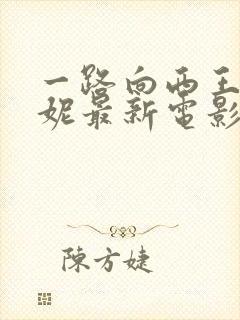 一路向西王
妮最新電影
陳方婕